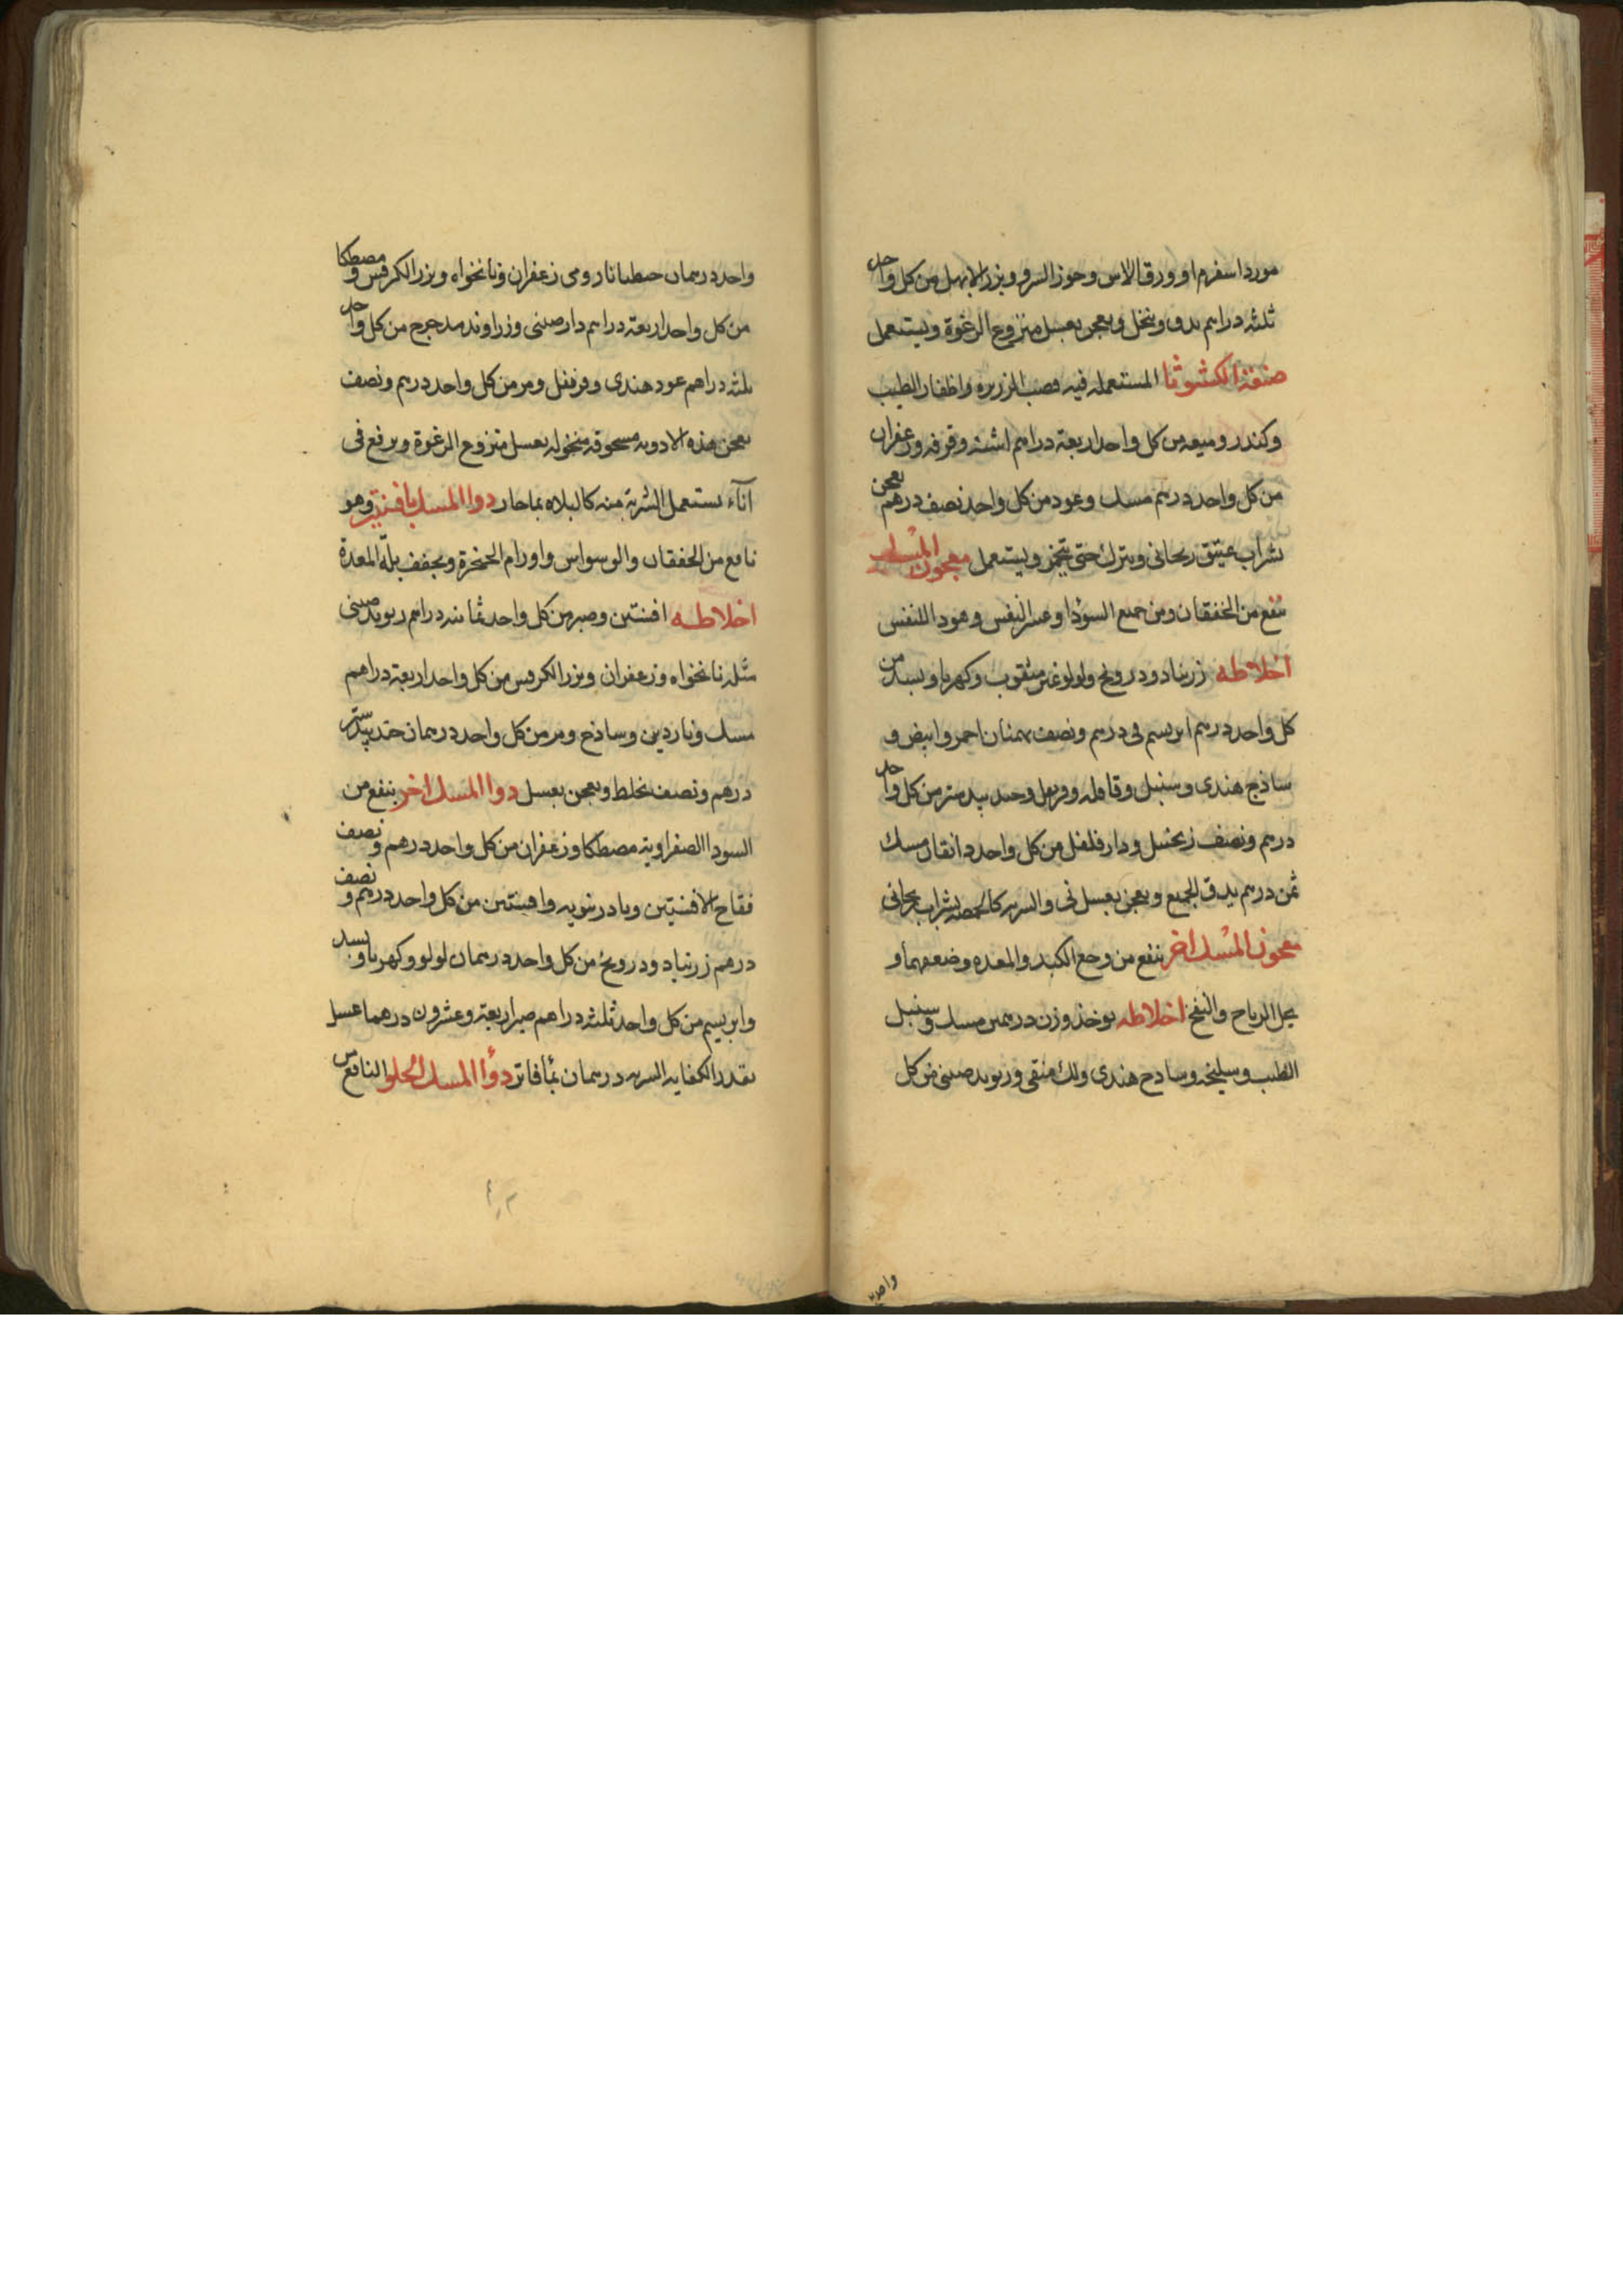 مورداسفرم او ورق الاس وجوز السرو وبزر الابهل من كل واحد
ثلثه دراهم يدق وينخل ويعجن بعسل منزوع الرغوة ويستعمل
صنعة الكشوثا المستعمله فيه قصب الزريره واظفار الطيب
وكندر وميعه من كل واحد اربعة دراهم اشنه وقرفه وزعفران
من كل واحد درهم مسك وعود من كل واحد نصف درهم يعجن
بشراب عتيق ريحانى ويترك حتى يتخمر ويستعمل معجون المسك
ينفع من الخفقان ومن جميع السودا وعسر النفس وهو
اخلاطه زرنباد ودرونج ولولو غير مثقوب وكهربا وبسد من
كل واحد درهم ابريسم نى درهم ونصف بهمنان احمر وابيض و
ساذج هندى وسنبل وقاقله وقرنفل وجندبيدستر من كل واحد
درهم ونصف زنجبيل ودار فلفل من كل واحد دانقان مسك
ثمن درهم يدق الجميع ويعجن بعسل نى والشربه كالحمصه بشراب ريحانى
معجون المسك اخر ينفع من وجع الكبد والمعده وضعفهما و
يحل الرياح والنفخ اخلاطه يوخذ وزن درهمين مسك وسنبل
الطيب وسليخه وساذج هندى ولك منقى وريوند صينى من كل
واحد
واحد درهمان جنطيانا رومى زعفران ونانخواه وبزر الكرفس ومصطكا
من كل واحد اربعة دراهم دارصينى وزراوند مدحرج من كل واحد
ثلثه دراهم عود هندى وقرنفل ومر من كل واحد درهم ونصف
يعجن هذه الادويه مسحوقه منخوله بعسل منزوع الرغوة ويرفع فى
آناء يستعمل الشربة منه كالبلاه بماحار دوا المسك بافسنتين وهو
نافع من الخفقان والوسواس واورام الحنجرة ويجفف بلة المعدة
اخلاطه افسنتين وصبر من كل واحد ثمانيه دراهم ريوند صينى
مثله نانخواه وزعفران وبزر الكرفس من كل واحد اربعة دراهم
مسك وناردين وساذج ومر من كل واحد درهمان جندبيدستر
درهم ونصف يخلط ويعجن بعسل دوا المسك اخر ينفع من
السودا الصفراوية مصطكا وزعفران من كل واحد درهم ونصف
فقاح الافسنتين وبادرنبويه وافسنتين من كل واحد درهم ونصف
درهم زرنباد ودرونج من كل واحد درهمان لولو وكهربا وبسد
وابريسم من كل واحد ثلثه دراهم صبر اربعة وعشرون درهما عسل
بقدر الكفايه الشربه درهمان بمأ فاتر دوأ المسك الحلو النافع من